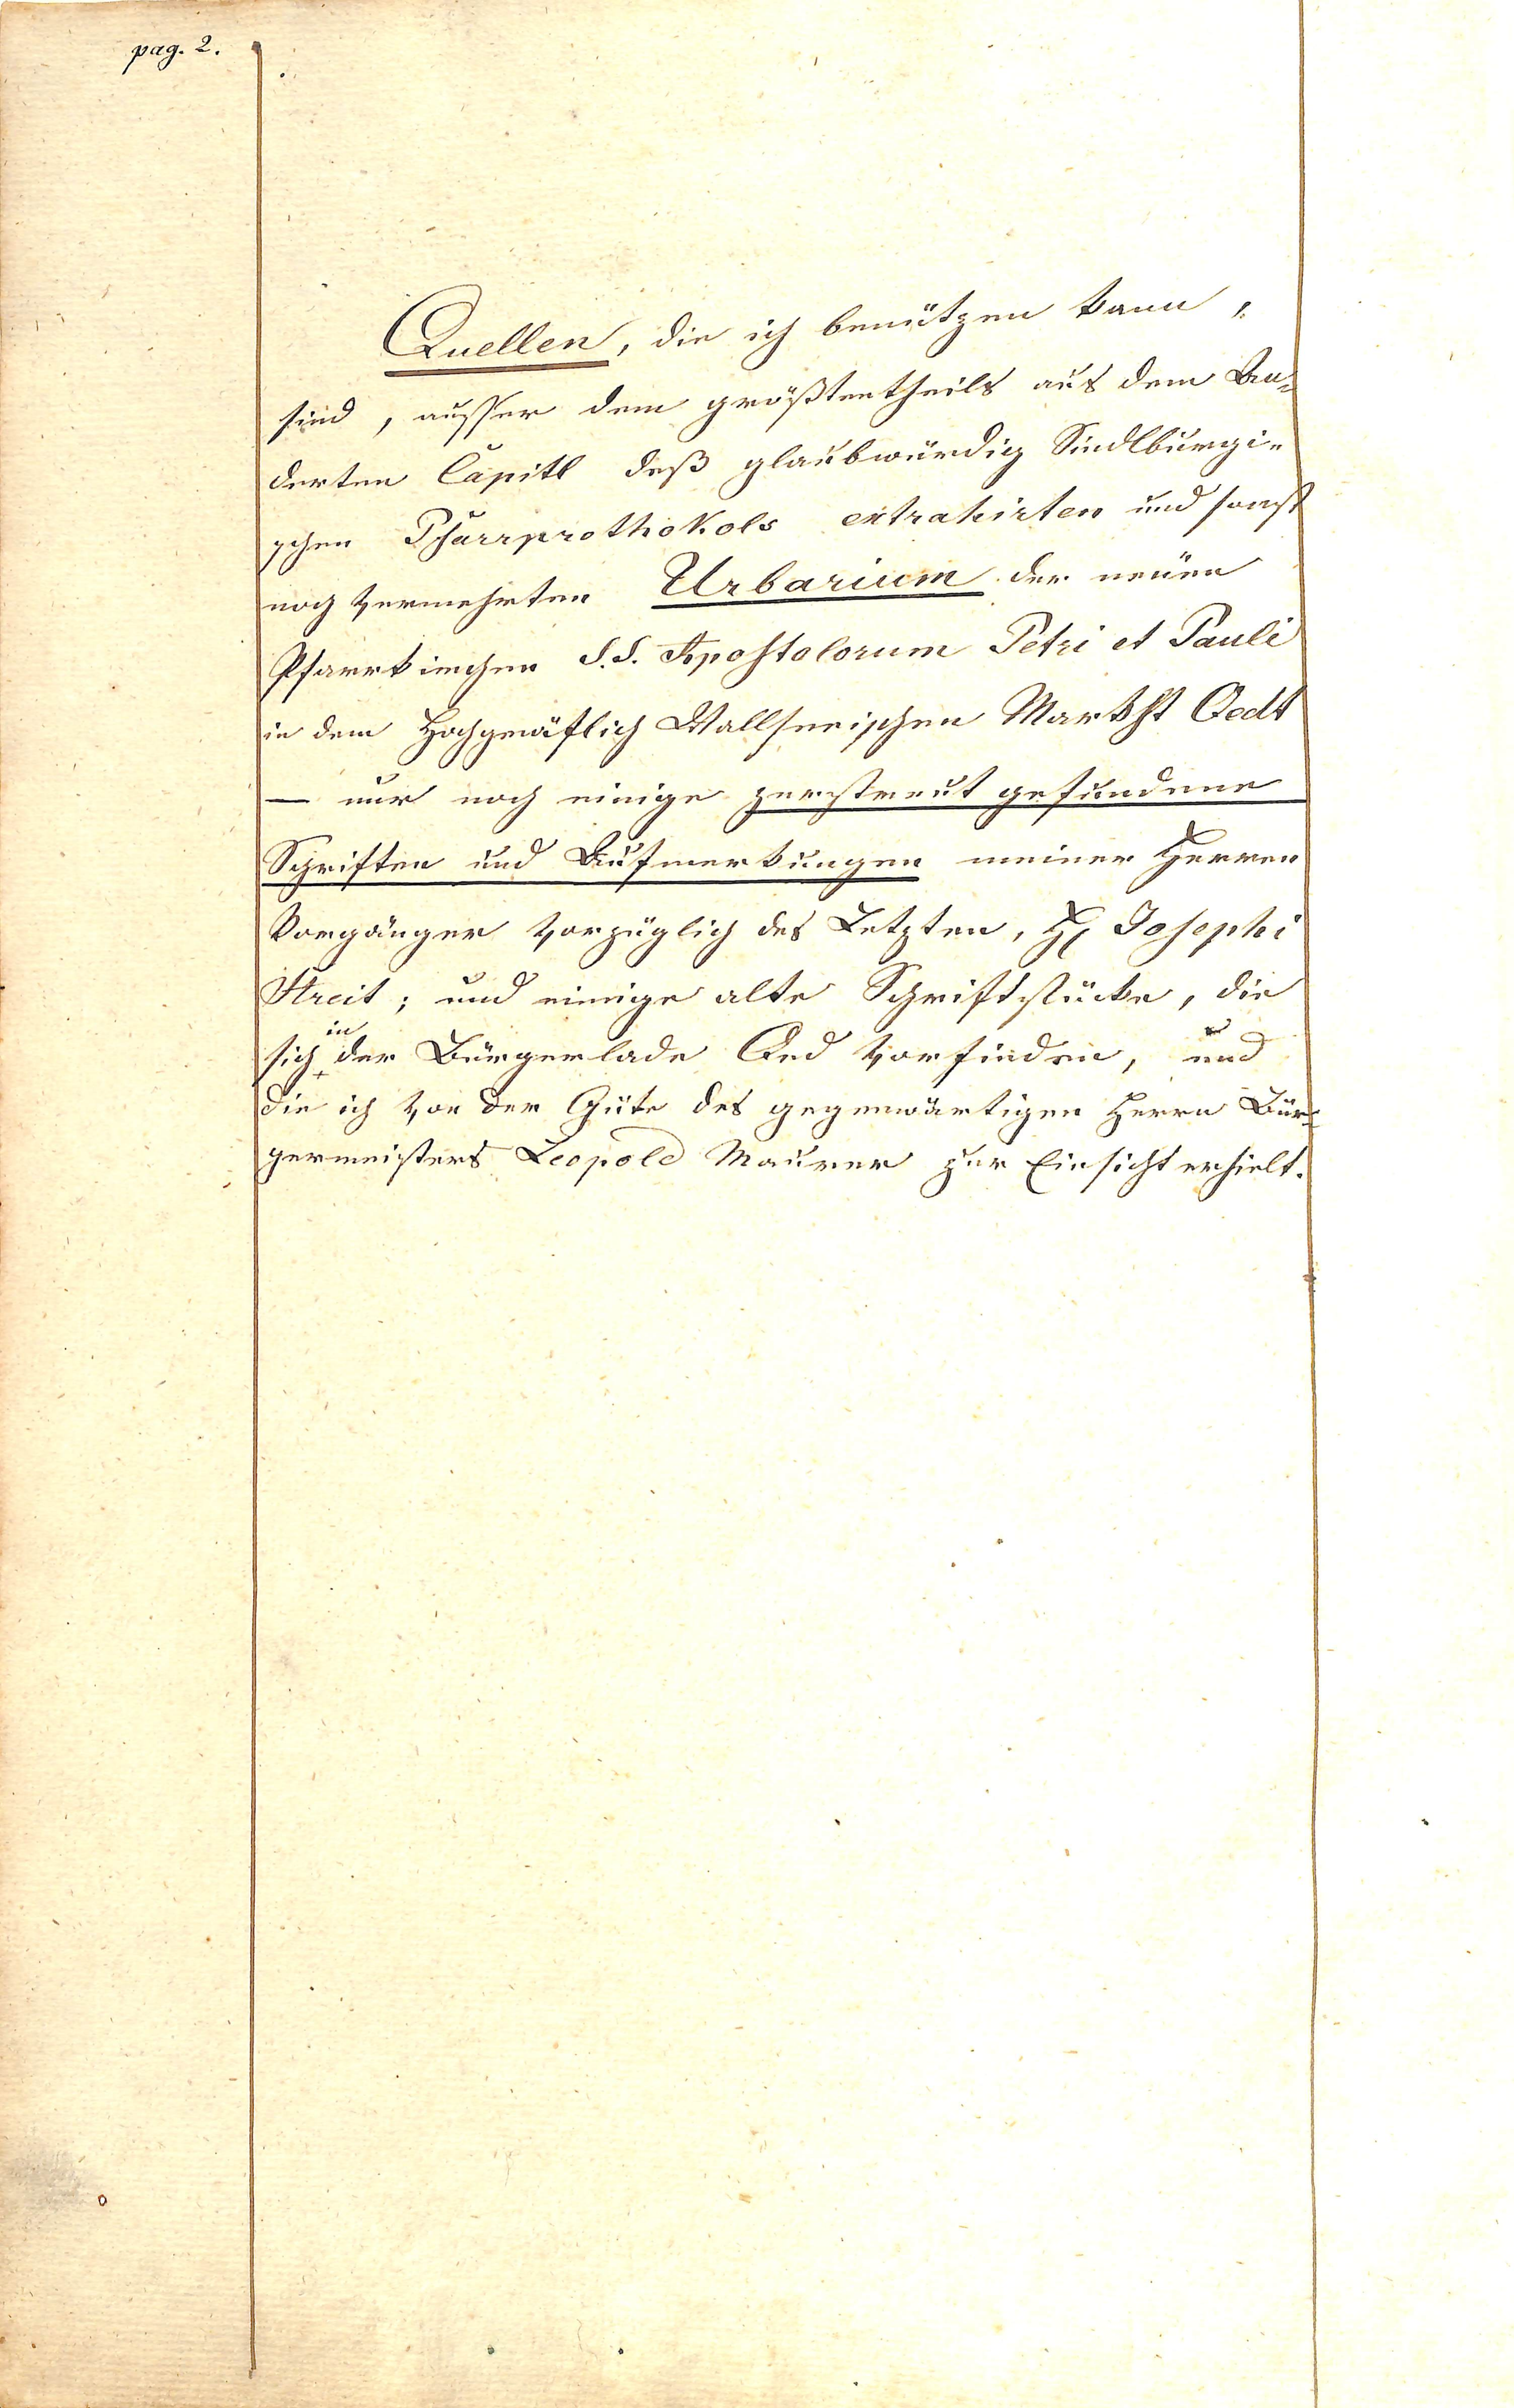 pag. 2.
Quellen, die ich benützen kann,
sind, ausser dem größtentheils aus dem An=
derten Capitl deß glaubwürdig Sindlburgi=
schen Pfarrprothokols extrahirten und sonst
noch vermehrten Urbarium der neüen
Pfarrkirchen S. S. Apostolorum Petri et Pauli
in dem Hochgräflich Wallseerischen Markht Oedt
— nur noch einige zerstreut gefundene
Schriften und Aufmerkungen meiner Herren
Vorgänger vorzüglich des Letzten, H. Josephi
Streit; und einige alte Schriftstücke, die
sich in der Bürgerlade Oed vorfinden, und
die ich von der Güte des gegenwärtigen Herrn Bür=
germeisters Leopold Maurer zur Einsicht erhielt.